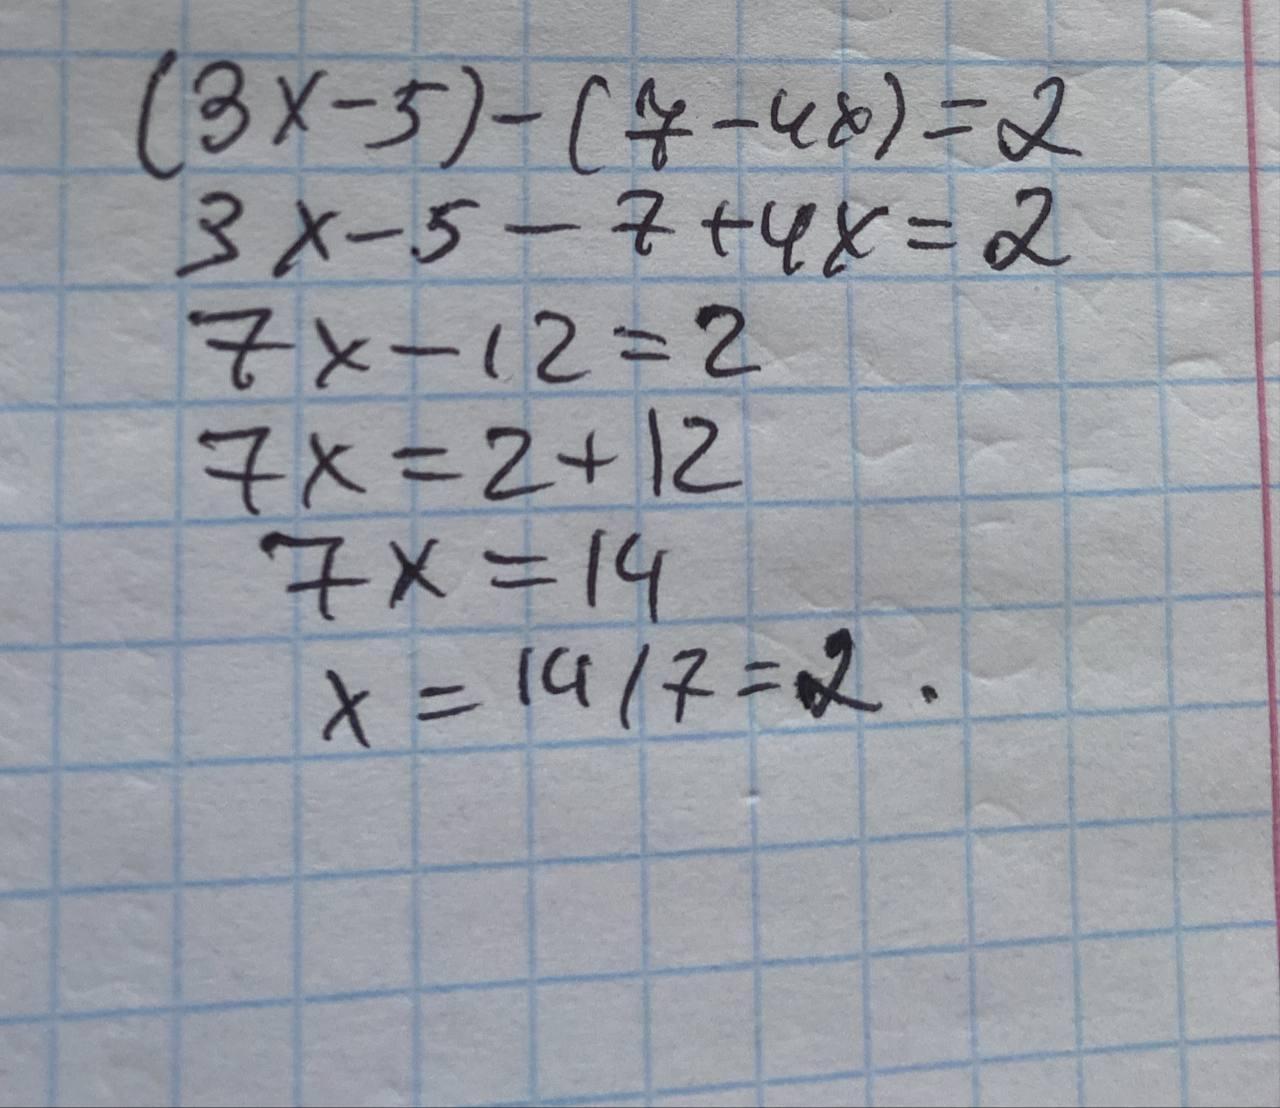 (3x-5)-(7-4x)=2
3x-5-7+4x=2
7x-12=2
7x=2+12
7x=14
x=14/7=2.